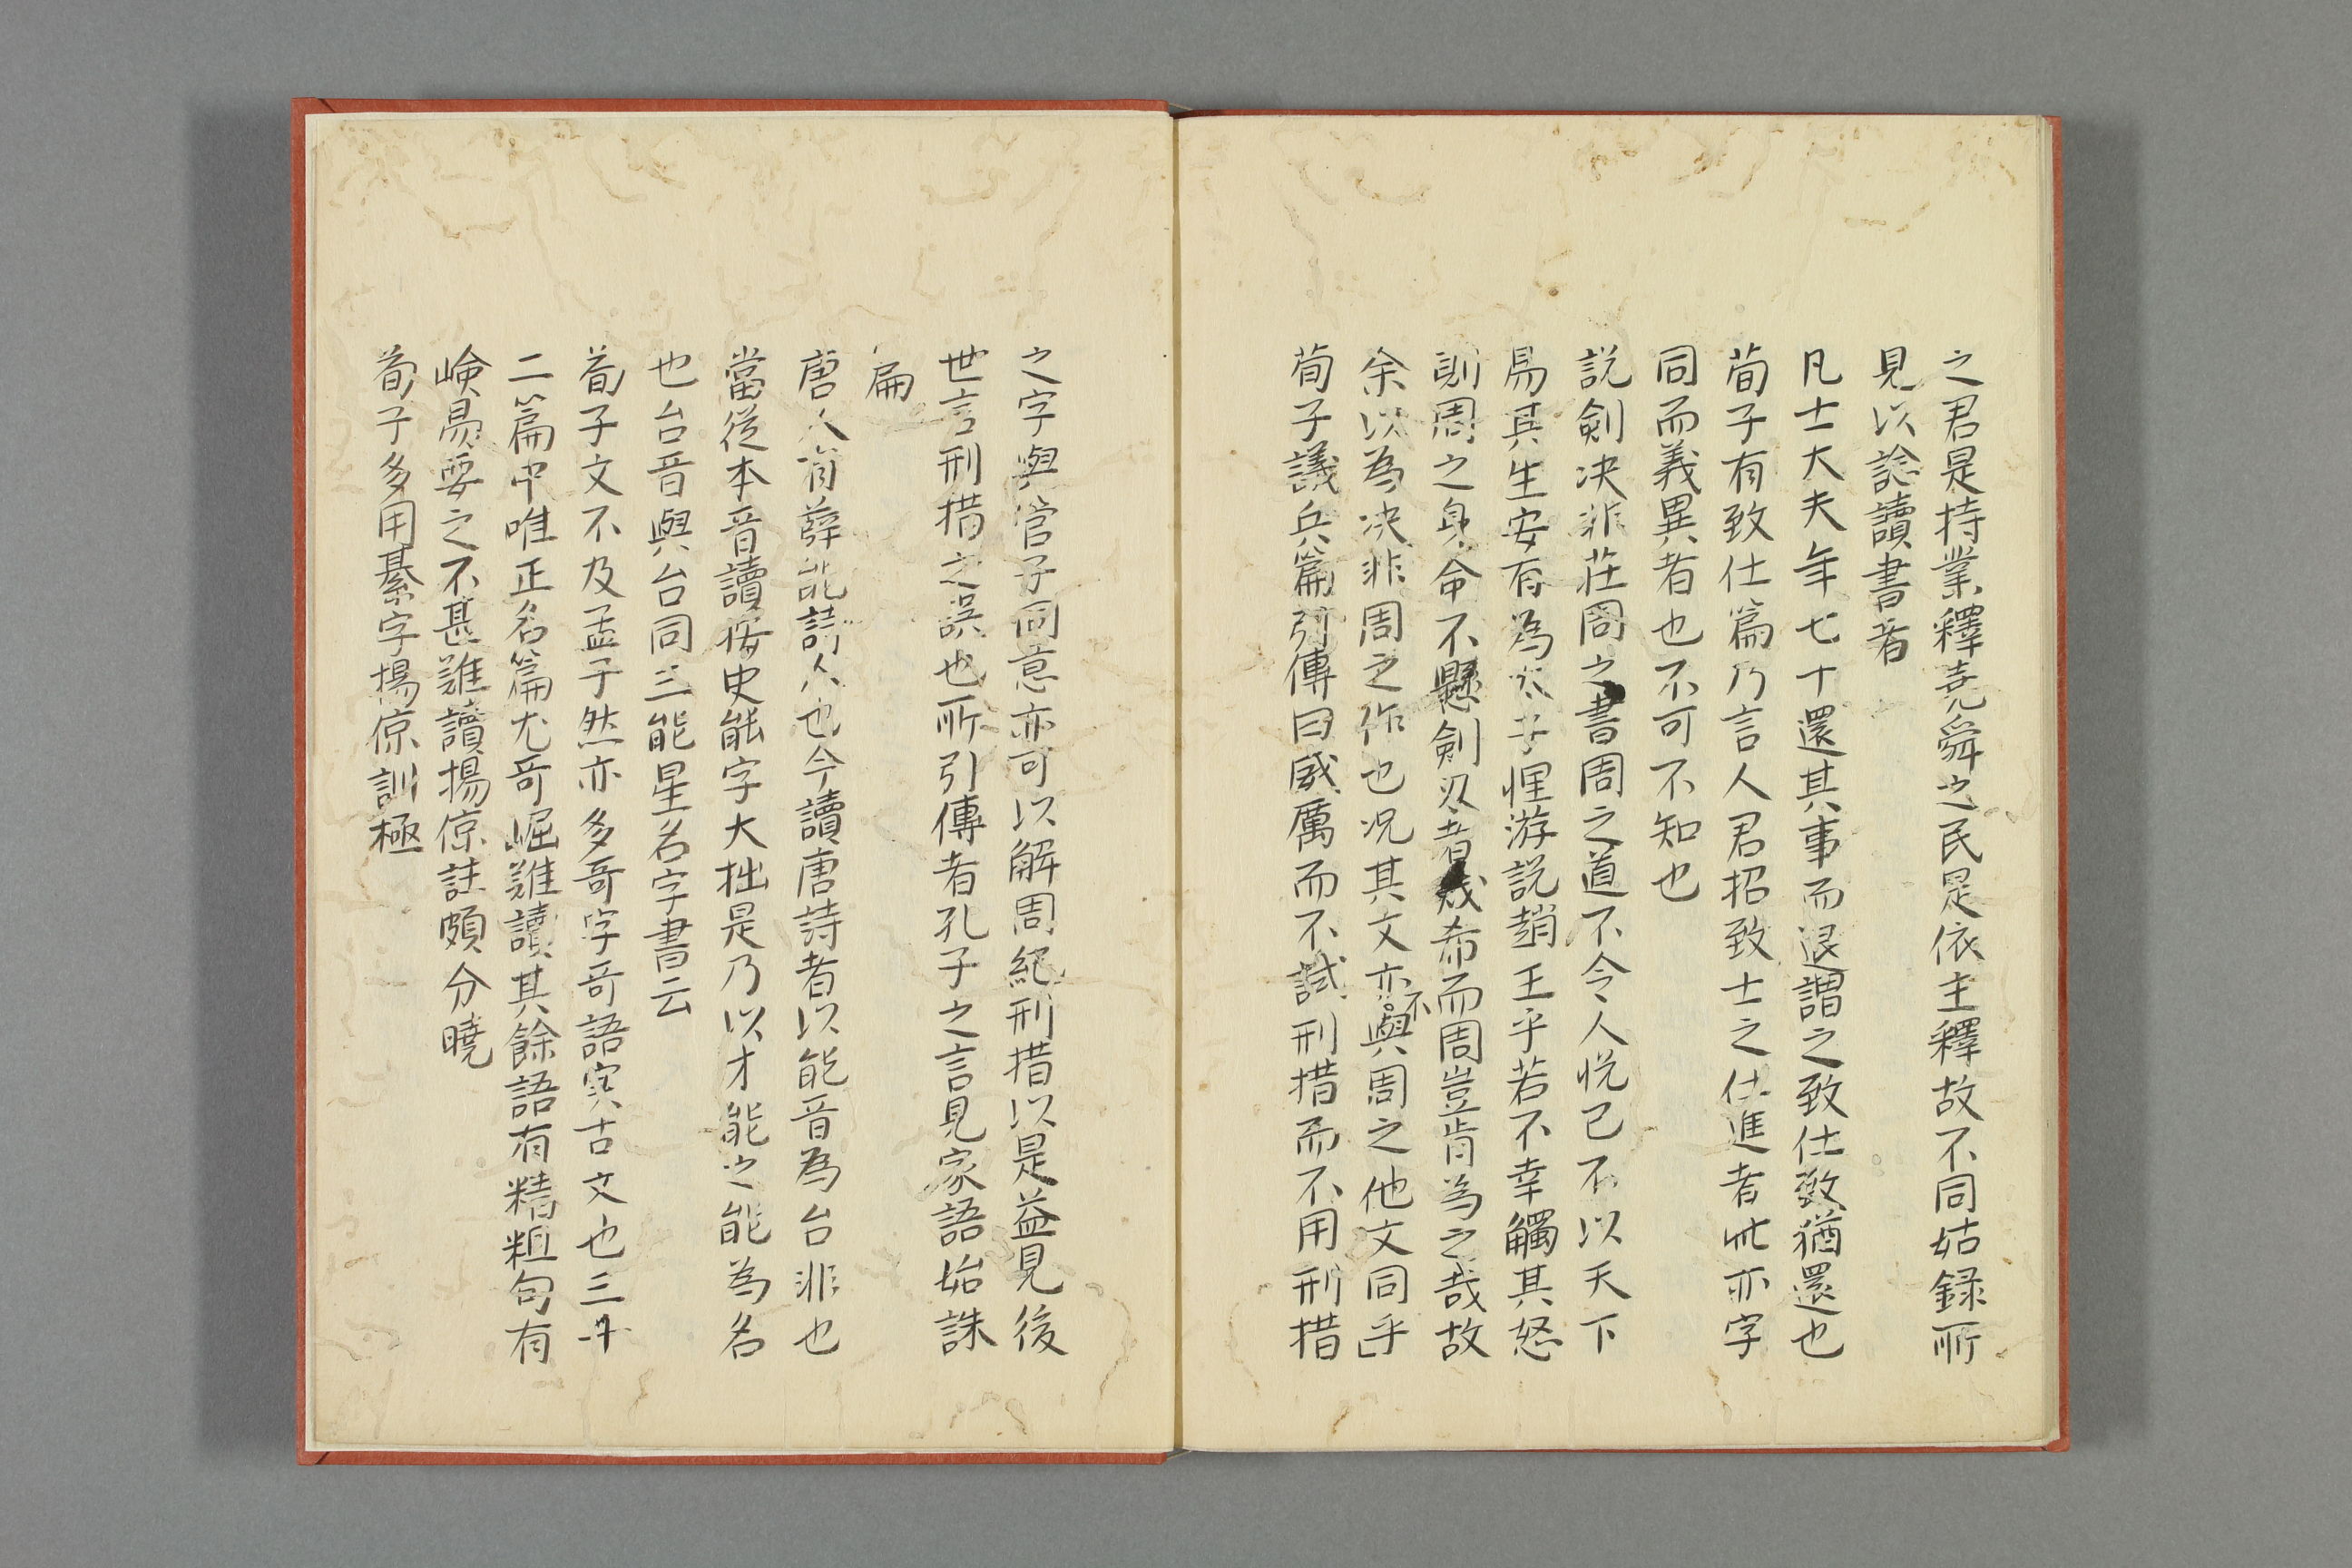 之君是持業釋堯舜之民是依主釋故不同姑録所
見以諗讀書者
凡士大夫年七十還其事而退謂之致仕致猶還也
荀子有致仕篇乃言人君招致士之仕進者此亦字
同而義異者也不可不知也
説劍决非莊周之書周之道不令人悦已不以天下
易其生安有為太子悝游説趙王乎若不幸觸其怒
則周之身命不懸劍刄者幾希而周豈肯為之哉故
余以為决非周之作也况其文亦不與周之他文同乎
荀子議兵篇引傳曰威厲而不試刑措而不用刑措
之字與管子同意亦可以解周紀刑措以是益見後
世言刑措之誤也所引傳者孔子之言見家語始誅
扁
唐人有薛能詩人也今讀唐詩者以能音為台非也
當從本音讀按史能字大拙是乃以才能之能為名
也台音與台同三能星名字書云
荀子文不及孟子然亦多奇字奇語実古文也三十
二篇中唯正名篇尤奇崛難讀其餘語有精粗句有
嶮易要之不甚難讀揚倞註頗分曉
荀子多用綦字揚倞訓極